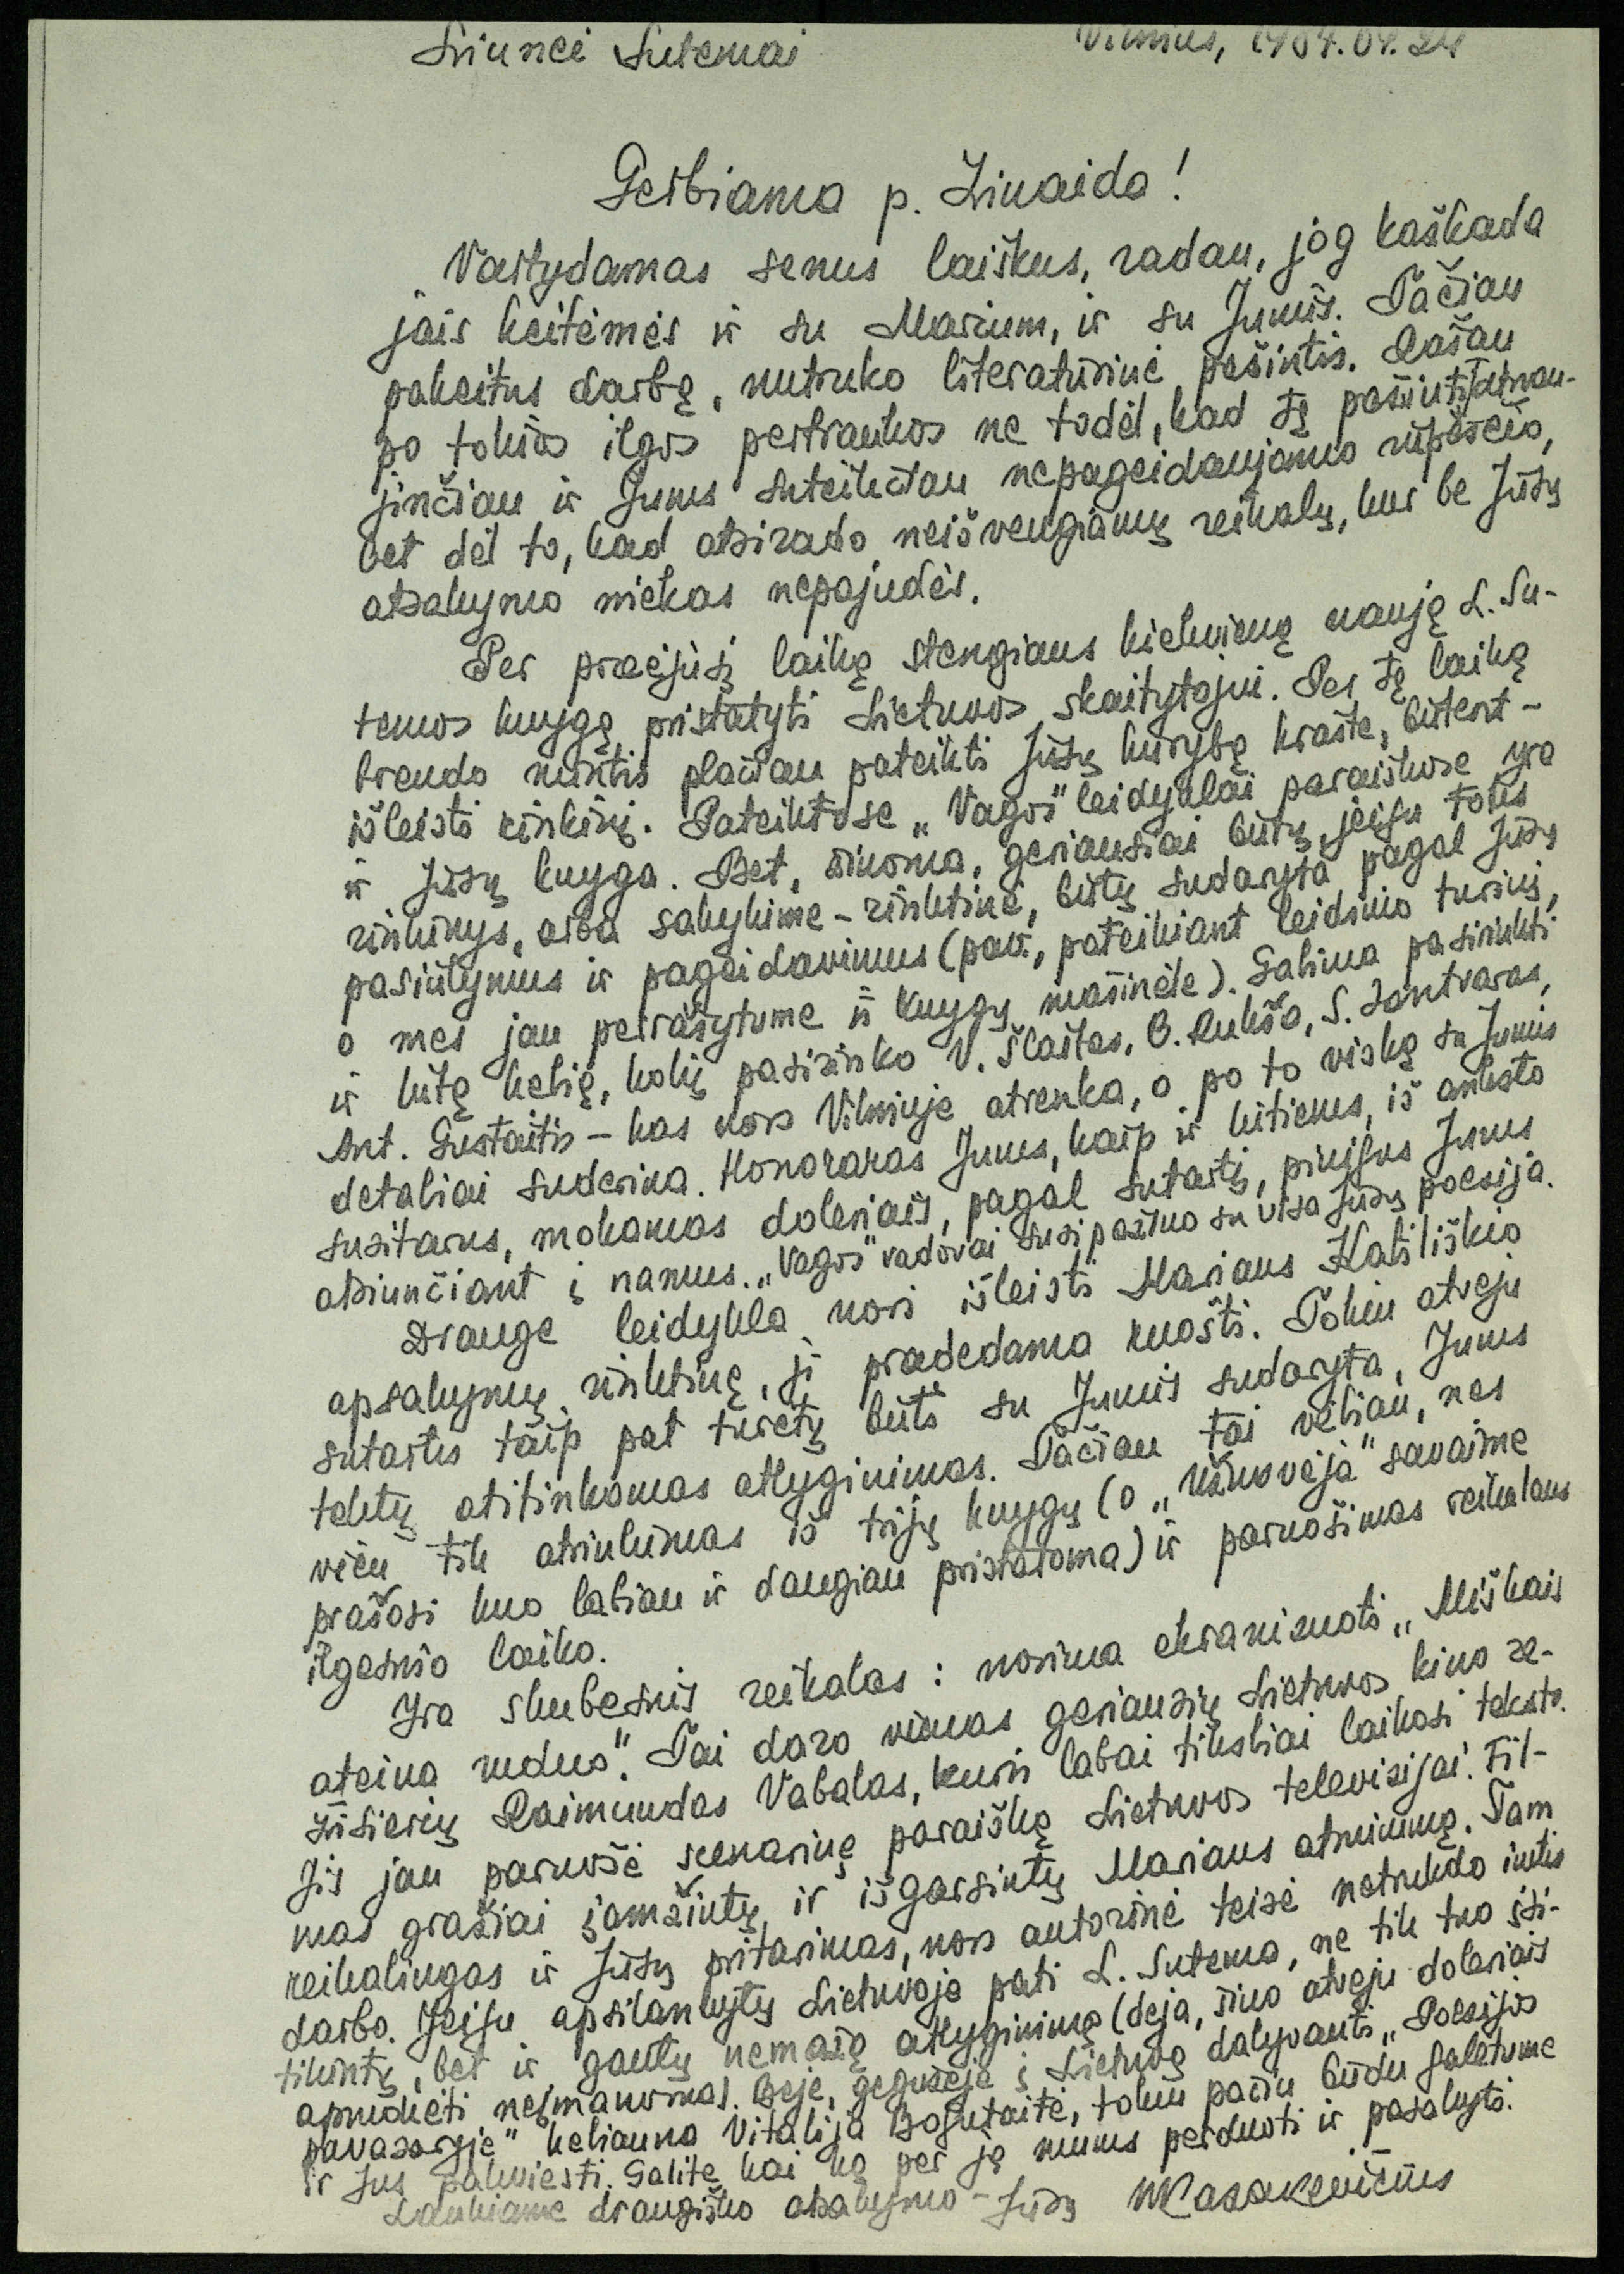 Liunei Sutemai
Vilnius, 1984.04.24
Gerbiama p. Zinaida!
Vartydamas senus laiškus, radau, jog kaškada
jais keitėmės ir su Marium, ir su Jumis. Tačiau
pakeitus darbą, nutruko literatūrinė pašintis. Rašau
po tokios ilgos pertraukos ne todėl, kad tą pašintį atnau-
jinčiau ir Jums suteikčiau nepageidaujamo rūpesčio,
bet dėl to, kad atsirado neišvengiamų reikalų, kur be Jūsų
atsakymo niekas nepajudės.
Per praėjusį laiką stengiaus kiekvieną naują L. Su-
temos knygą pristatyti Lietuvos skaitytojui. Per tą laiką
brendo mintis plačiau pateikti Jūsų kūrybą krašte, būtent –
išleisti rinkinį. Pateiktose „Vagos" leidyklai paraiškose yra
ir Jūsų knyga. Bet, žinoma, geriausiai būtų, jeigu toks
rinkinys, arba sakykime – rinktinė, būtų sudaryta pagal Jūsų
pasiūlymus ir pageidavimus (pav., pateikiant leidinio turinį,
o mes jau perrašytume iš knygų mašinėle). Galima pasirinkti
ir kitą kelią, kokį pasirinko V. Šlaitas, O. Rukša, S. Santvaras,
Ant. Gustaitis – kas nors Vilniuje atrenka, o po to viską su Jumis
detaliai suderina. Honoraras Jums, kaip ir kitiems, iš anksto
susitarus, mokamas doleriais, pagal sutartį, pinigus Jums
atsiunčiant į namus. „Vagos" vadovai susipažino su visa Jūsų poezija.
Drauge leidykla nori išleisti Mariaus Katiliškio
apsakymų rinktinę, ji pradedama ruošti. Tokiu atveju
sutartis taip pat turėtų būti su Jumis sudaryta, Jums
tektų atitinkamas atlyginimas. Tačiau tai vėliau, nes
vien tik atrinkimas iš trijų knygų (o „Užuovėja" savaime
prašosi kuo labiau ir daugiau pristatoma) ir paruošimas reikalaus
ilgesnio laiko.
Yra skubesnis reikalas: norima ekranizuoti „Miškais
ateina ruduo". Tai daro vienas geriausių Lietuvos kino re-
žisierių Raimundas Vabalas, kuris labai tiksliai laikosi teksto.
Jis jau paruošė scenarinę paraišką Lietuvos televizijai. Fil-
mas gražiai įamžintų ir išgarsintų Mariaus atminimą. Tam
reikalingas ir Jūsų pritarimas, nors autorinė teisė netrukdo imtis
darbo. Jeigu apsilankytų Lietuvoje pati L. Sutema, ne tik tuo įsi-
tikintų, bet ir gautų nemažą atlyginimą (deja, šiuo atveju doleriais
apmokėti neįmanoma). Beje, gegužėje į Lietuvą dalyvauti „Poezijos
pavasaryje" keliauna Vitalija Bogutaitė, tokiu pačiu būdu galėtume
ir Jus pakviesti. Galite kai ką per ją mums perduoti ir pasakyti.
Laukiame draugiško atsakymo – Jūsų VKazakevičius